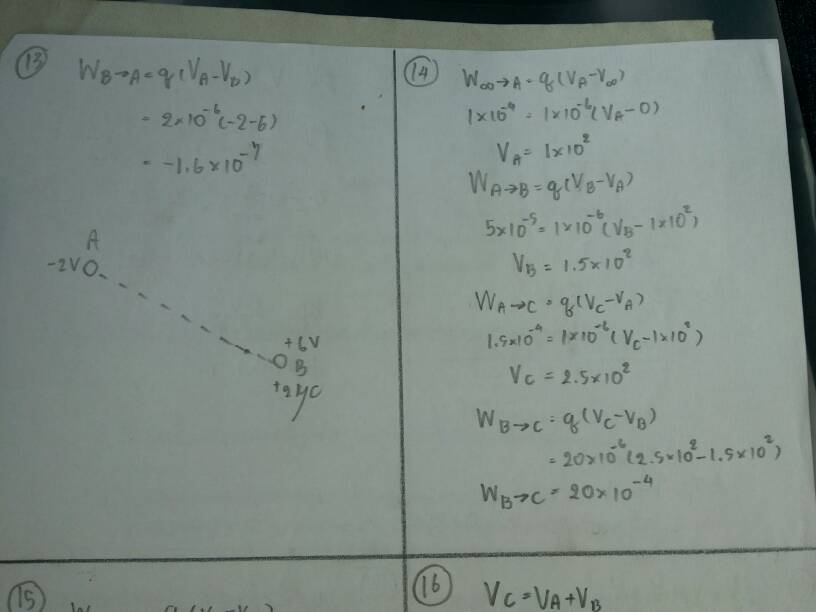 13
W B→A = q(VA-VB)
= 2×10⁻⁶(-2-6)
= -1.6×10⁻⁷
A
-2V
+6V
B
+2μC
14
W∞→A = q(VA-V∞)
1×10⁻⁴ = 1×10⁻⁶(VA-0)
VA = 1×10²
WA→B = q(VB-VA)
5×10⁻⁵ = 1×10⁻⁶(VB-1×10²)
VB = 1.5×10²
WA→C = q(VC-VA)
1.5×10⁻⁴ = 1×10⁻⁶(VC-1×10²)
VC = 2.5×10²
WB→C = q(VC-VB)
= 20×10⁻⁶(2.5×10²-1.5×10²)
WB→C = 20×10⁻⁴
15
16
VC = VA+VB